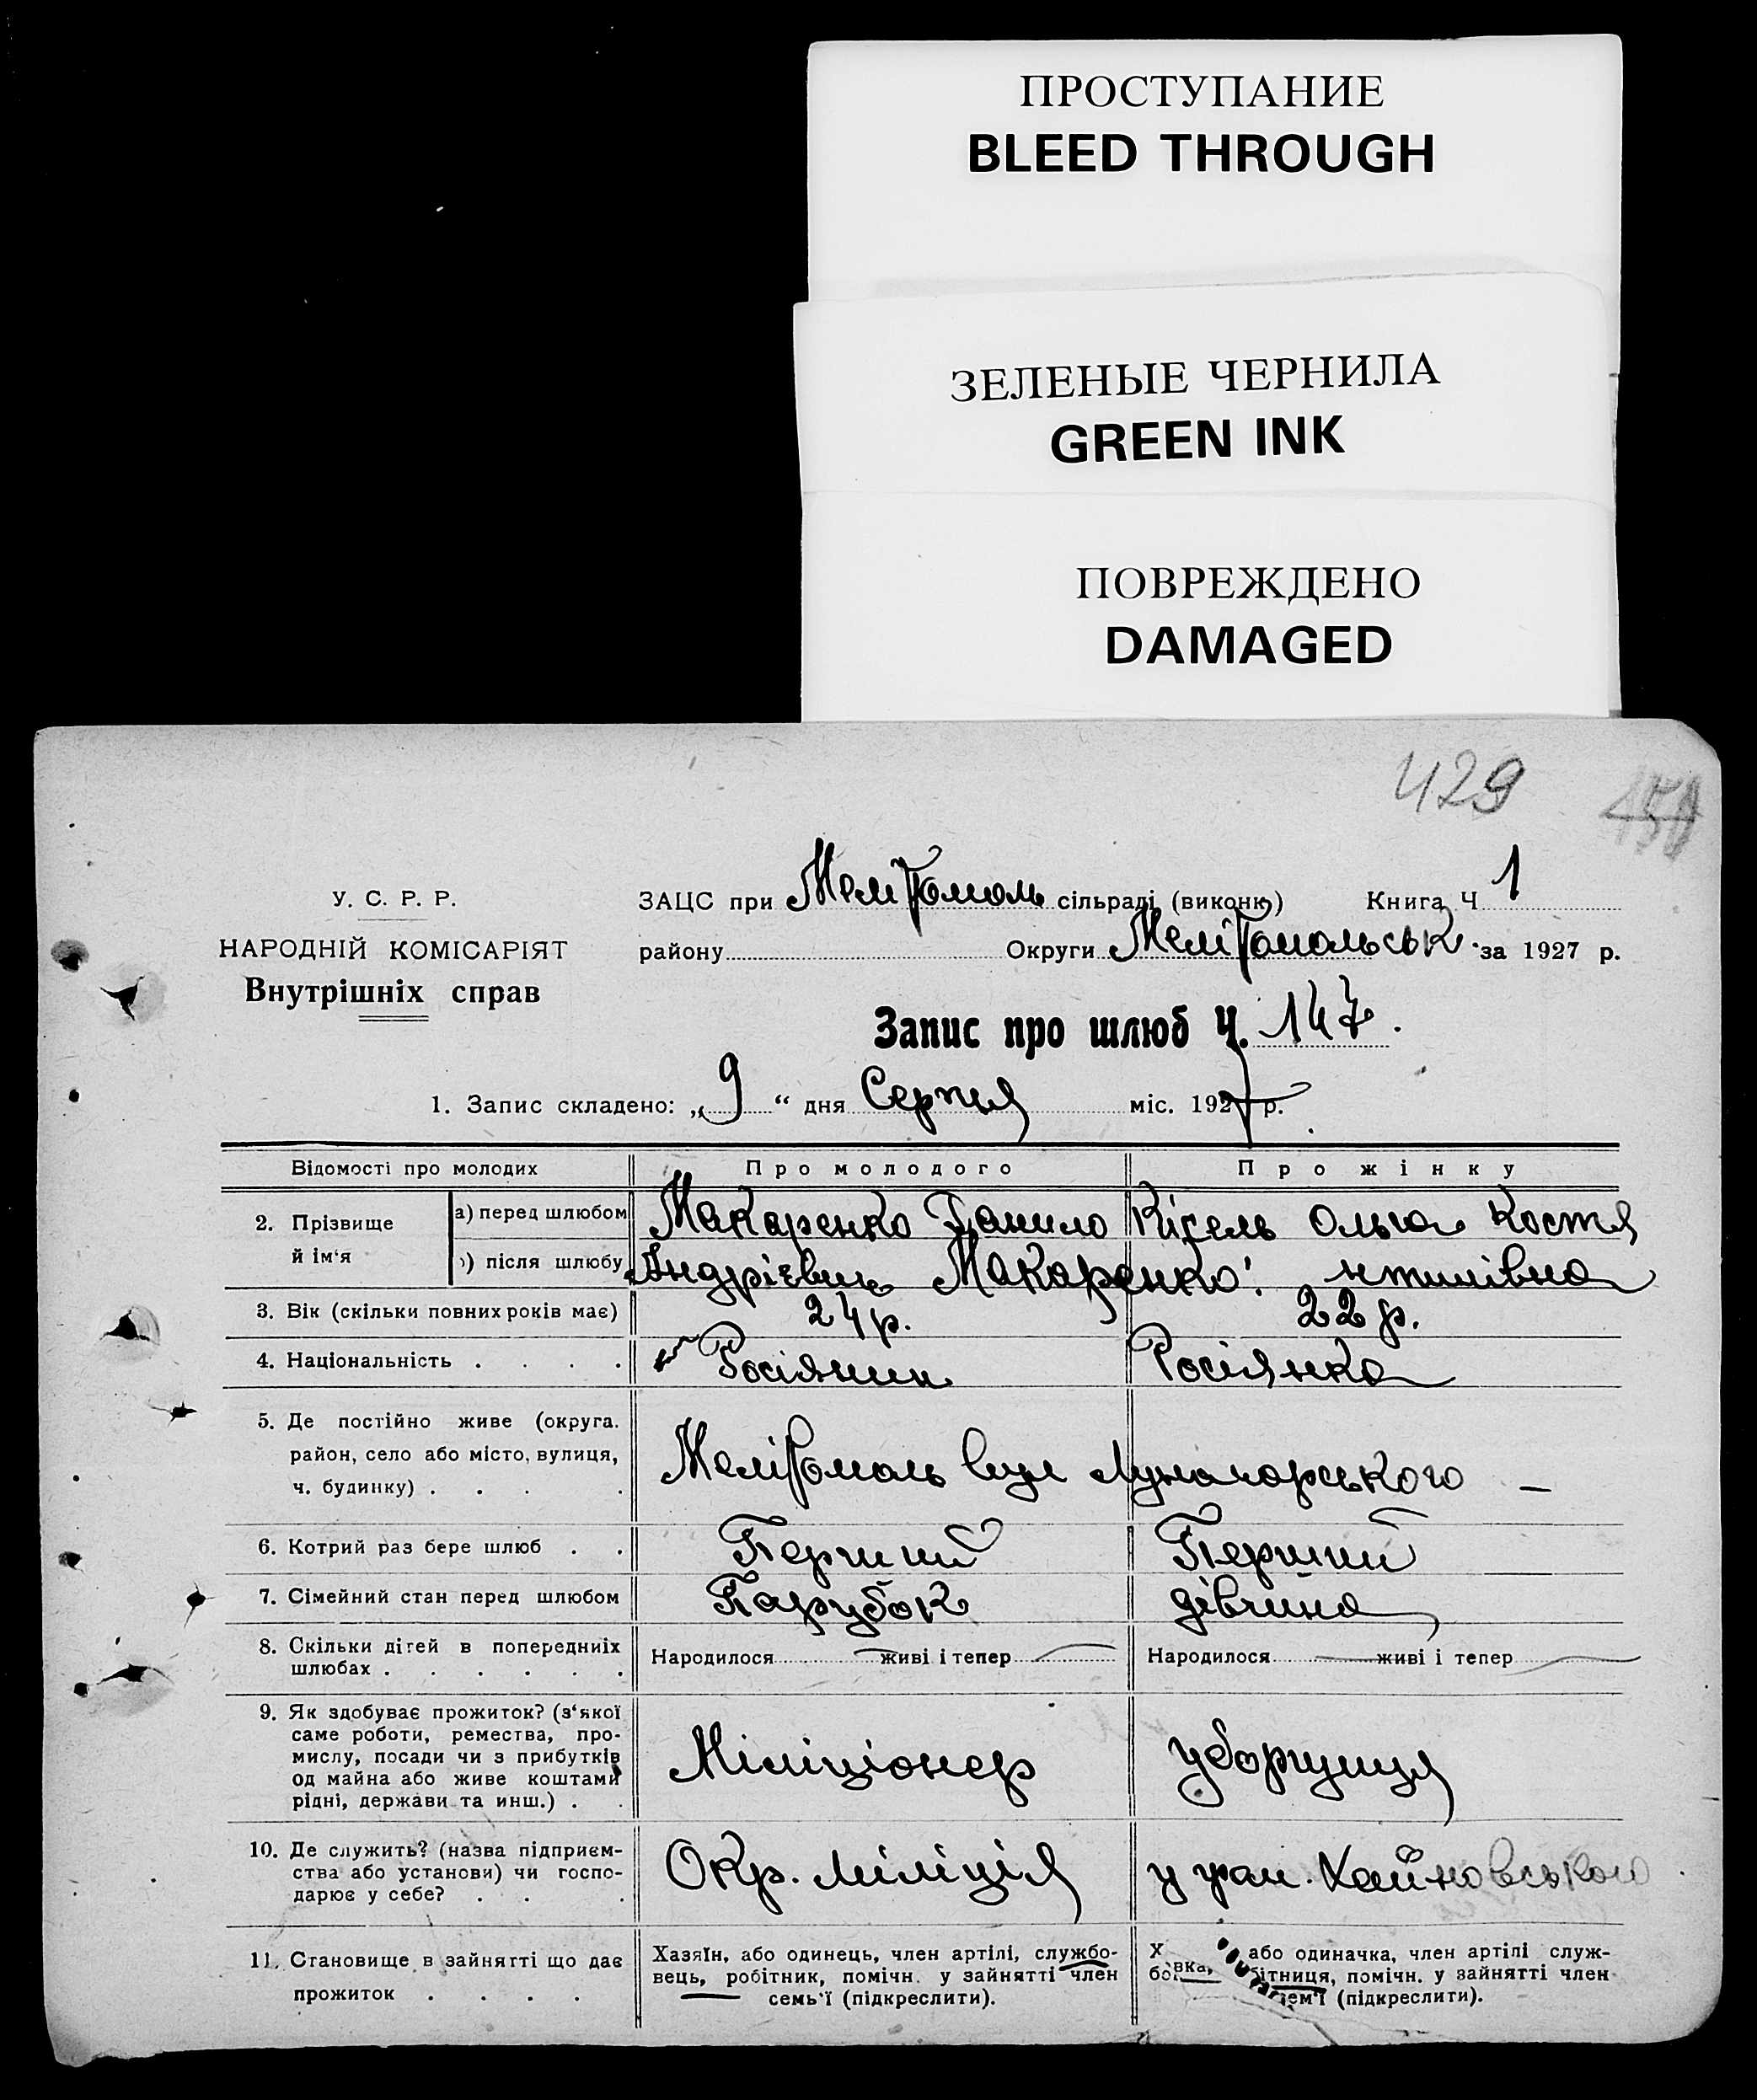 ПРОСТУПАНИЕ
BLEED THROUGH
ЗЕЛЕНЫЕ ЧЕРНИЛА
GREEN INK
ПОВРЕЖДЕНО
DAMAGED
429
У. С. Р. Р.
НАРОДНІЙ КОМІСАРІЯТ
Внутрішніх справ
ЗАЦС при Мелітополь сільраді (виконк) Книга Ч 1
району Округи Мелітопольськ. за 1927 р.
Запис про шлюб Ч. 147.
1. Запис складено: „9“ дня Серпня міс. 1927 р.
Відомості про молодих Про молодого Про жінку
2. Прізвище й ім‘я
а) перед шлюбом Макаренко Данило Кісель Ольга Костя
) після шлюбу Андрієвич Макаренко. нтинівна
3. Вік (скільки повних років має) 24 р. 22 р.
4. Національність . . . . Росіянин Росіянка
5. Де постійно живе (округа.
район, село або місто, вулиця,
ч. будинку) . . . .
Мелітополь вул Луначарського —
6. Котрий раз бере шлюб . . Перший Перший
7. Сімейний стан перед шлюбом Парубок дівчина
8. Скільки дітей в попередниіх
шлюбах . . . . . .
Народилося — живі і тепер — Народилося — живі і тепер —
9. Як здобуває прожиток? (з‘якої
саме роботи, ремества, про-
мислу, посади чи з прибутків
од майна або живе коштами
рідні, держави та инш.) . .
Міліціонер уборщиця
10. Де служить? (назва підприєм-
ства або установи) чи госпо-
дарює у себе? . . .
Окр. міліція у Хайновського
11. Становище в зайнятті що дає
прожиток . . . .
Хазяїн, або одинець, член артілі, службо-
вець, робітник, помічн. у зайнятті член
семь‘ї (підкреслити).
Х або одиначка, член артілі служ-
бо вка, бітниця, помічн. у зайнятті член
ем‘ї (підкреслити).